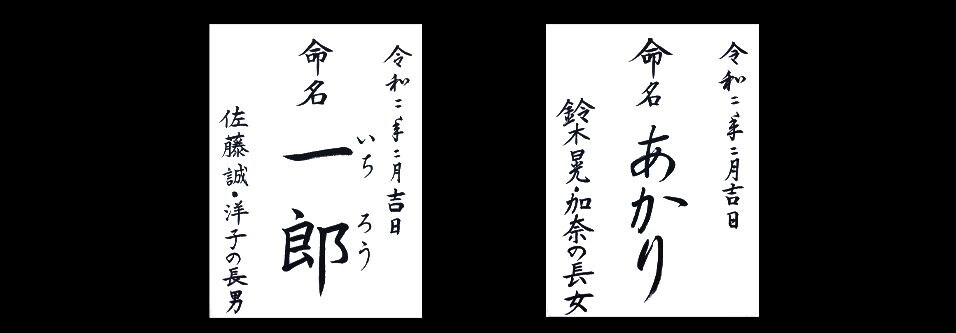 令和二年二月吉日
命名
一郎
いちろう
佐藤誠・洋子の長男
令和二年二月吉日
命名
あかり
鈴木晃・加奈の長女